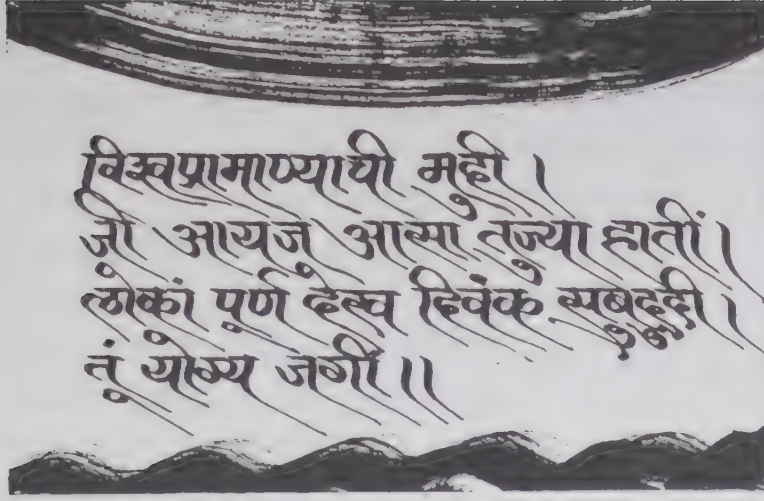 विश्वप्रामाण्याची मही ।
जी आयज आसा तुज्या हातीं ।
लोकां पूर्ण देख दिवंक सबुद्दी ।
तूं योग्य जगीं ॥